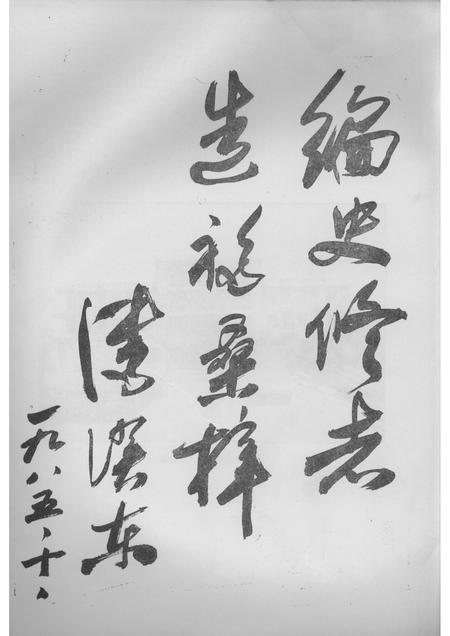 编史修志
造福桑梓
陈汉东
一九八五、十、